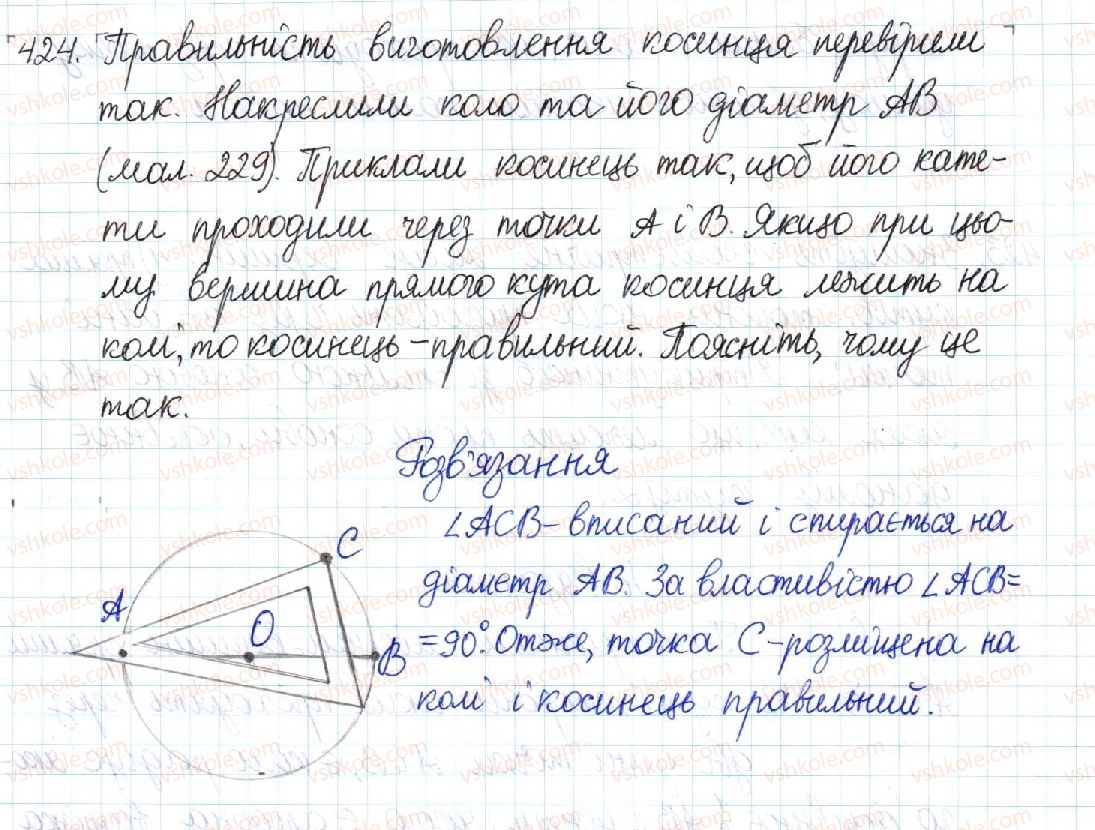 424. Правильність виготовлення косинця перевірили
так. Накреслили коло та його діаметр AB
(мал. 229). Приклали косинець так, щоб його кате-
ти проходили через точки A і B. Якщо при цьо-
му вершина прямого кута косинця лежить на
колі, то косинець – правильний. Поясніть, чому це
так.
Розв'язання
∠ACB – вписаний і спирається на
діаметр AB. За властивістю ∠ACB =
= 90°. Отже, точка C – розміщена на
колі і косинець правильний.
C
A
O
B
vshkole.com